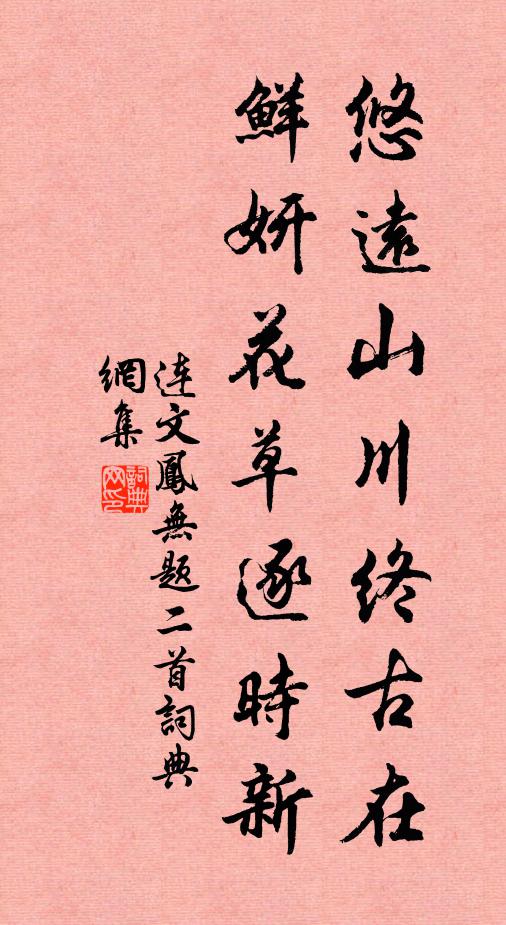 悠遠山川終古在
鮮妍花草逐時新
連文鳳無題二首詞典
網集
詞典
网印